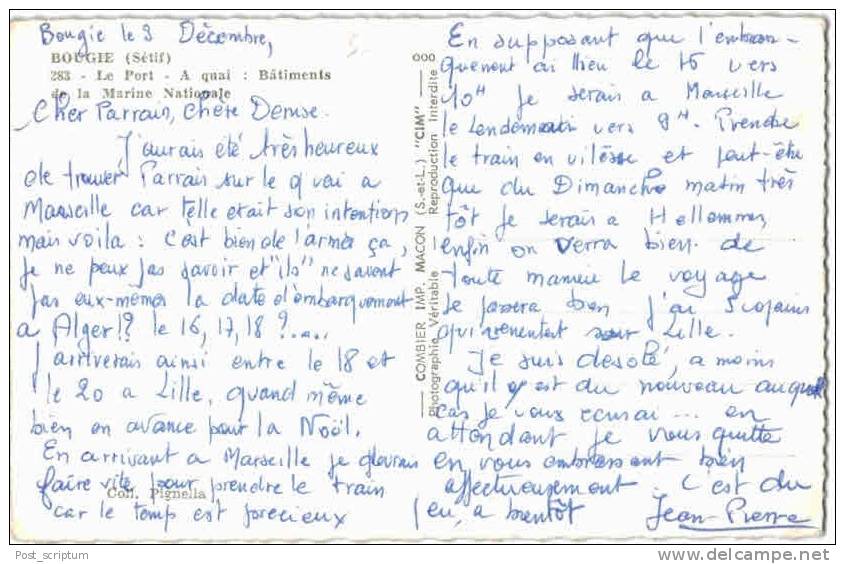 Bougie le 3 Décembre,
BOUGIE (Sétif)
283 - Le Port - A quai : Bâtiments
de la Marine Nationale
Cher Parrain, chère Denise.
J'aurais été très heureux
de trouver Parrain sur le quai a
Marseille car telle etait son intentions
mais voila : c'est bien de l'armée ça,
je ne peux pas savoir et "ils" ne savent
pas eux-mêmes la date d'embarquement
a Alger!? le 16, 17, 18 ?....
J'arriverais ainsi entre le 18 et
le 20 a Lille, quand même
bien en avance pour la Noël.
En arrivant a Marseille je devrais
faire vite pour prendre le train
Coll. Pignella
car le temps est precieux
COMBIER IMP. MACON (S.-et-L.) "CIM"
Photographie Véritable Reproduction Interdite
En supposant que l'embar-
quement ai lieu le 16 vers
10H je serais a Marseille
le lendemain vers 9H. Prendre
le train en vitesse et peut-être
que du Dimanche matin très
tôt je serais a Hellemmes,
enfin on verra bien. de
toute manière le voyage
se passera bien j'ai 3 copains
qui viennent sur Lille.
Je suis desolé, a moins
qu'il y est du nouveau auquel
cas je vous ecrirai ... en
attendant je vous quitte
en vous embrassant bien
affectueusement. C'est du
peu, a bientôt Jean-Pierre
Post_scriptum
delcampe.net